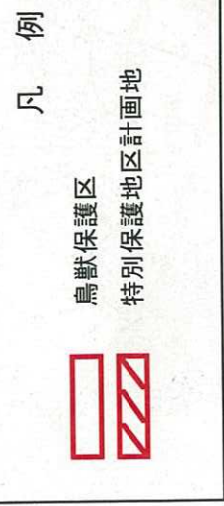 凡 例
鳥獣保護区
特別保護地区計画地